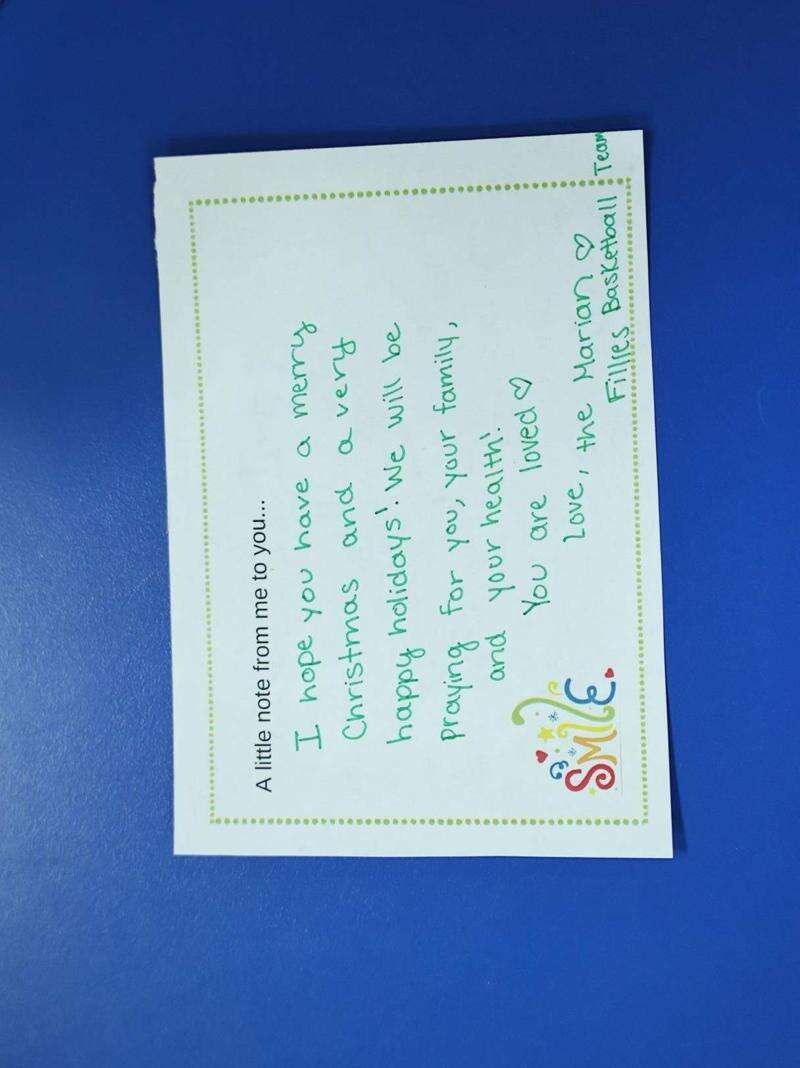 A little note from me to you...
I hope you have a merry
Christmas and a very
happy holidays! We will be
praying for you, your family,
and your health!
You are loved ♡
Love, the Marian ♡
Fillies Basketball Team
SMILE